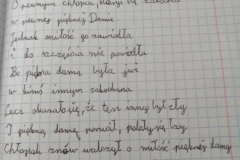 O pewnym chłopcu, który się zakochał
w pewnej pięknej Damie
jednak miłość go zawiodła
i do szczęścia nie powiodła
Bo piękna dama była już
w kimś innym zakochana
Lecz okazało się, że ten inny był zły
I piękną damę porzucił, polały się łzy
Chłopak znów walczył o miłość pięknej damy